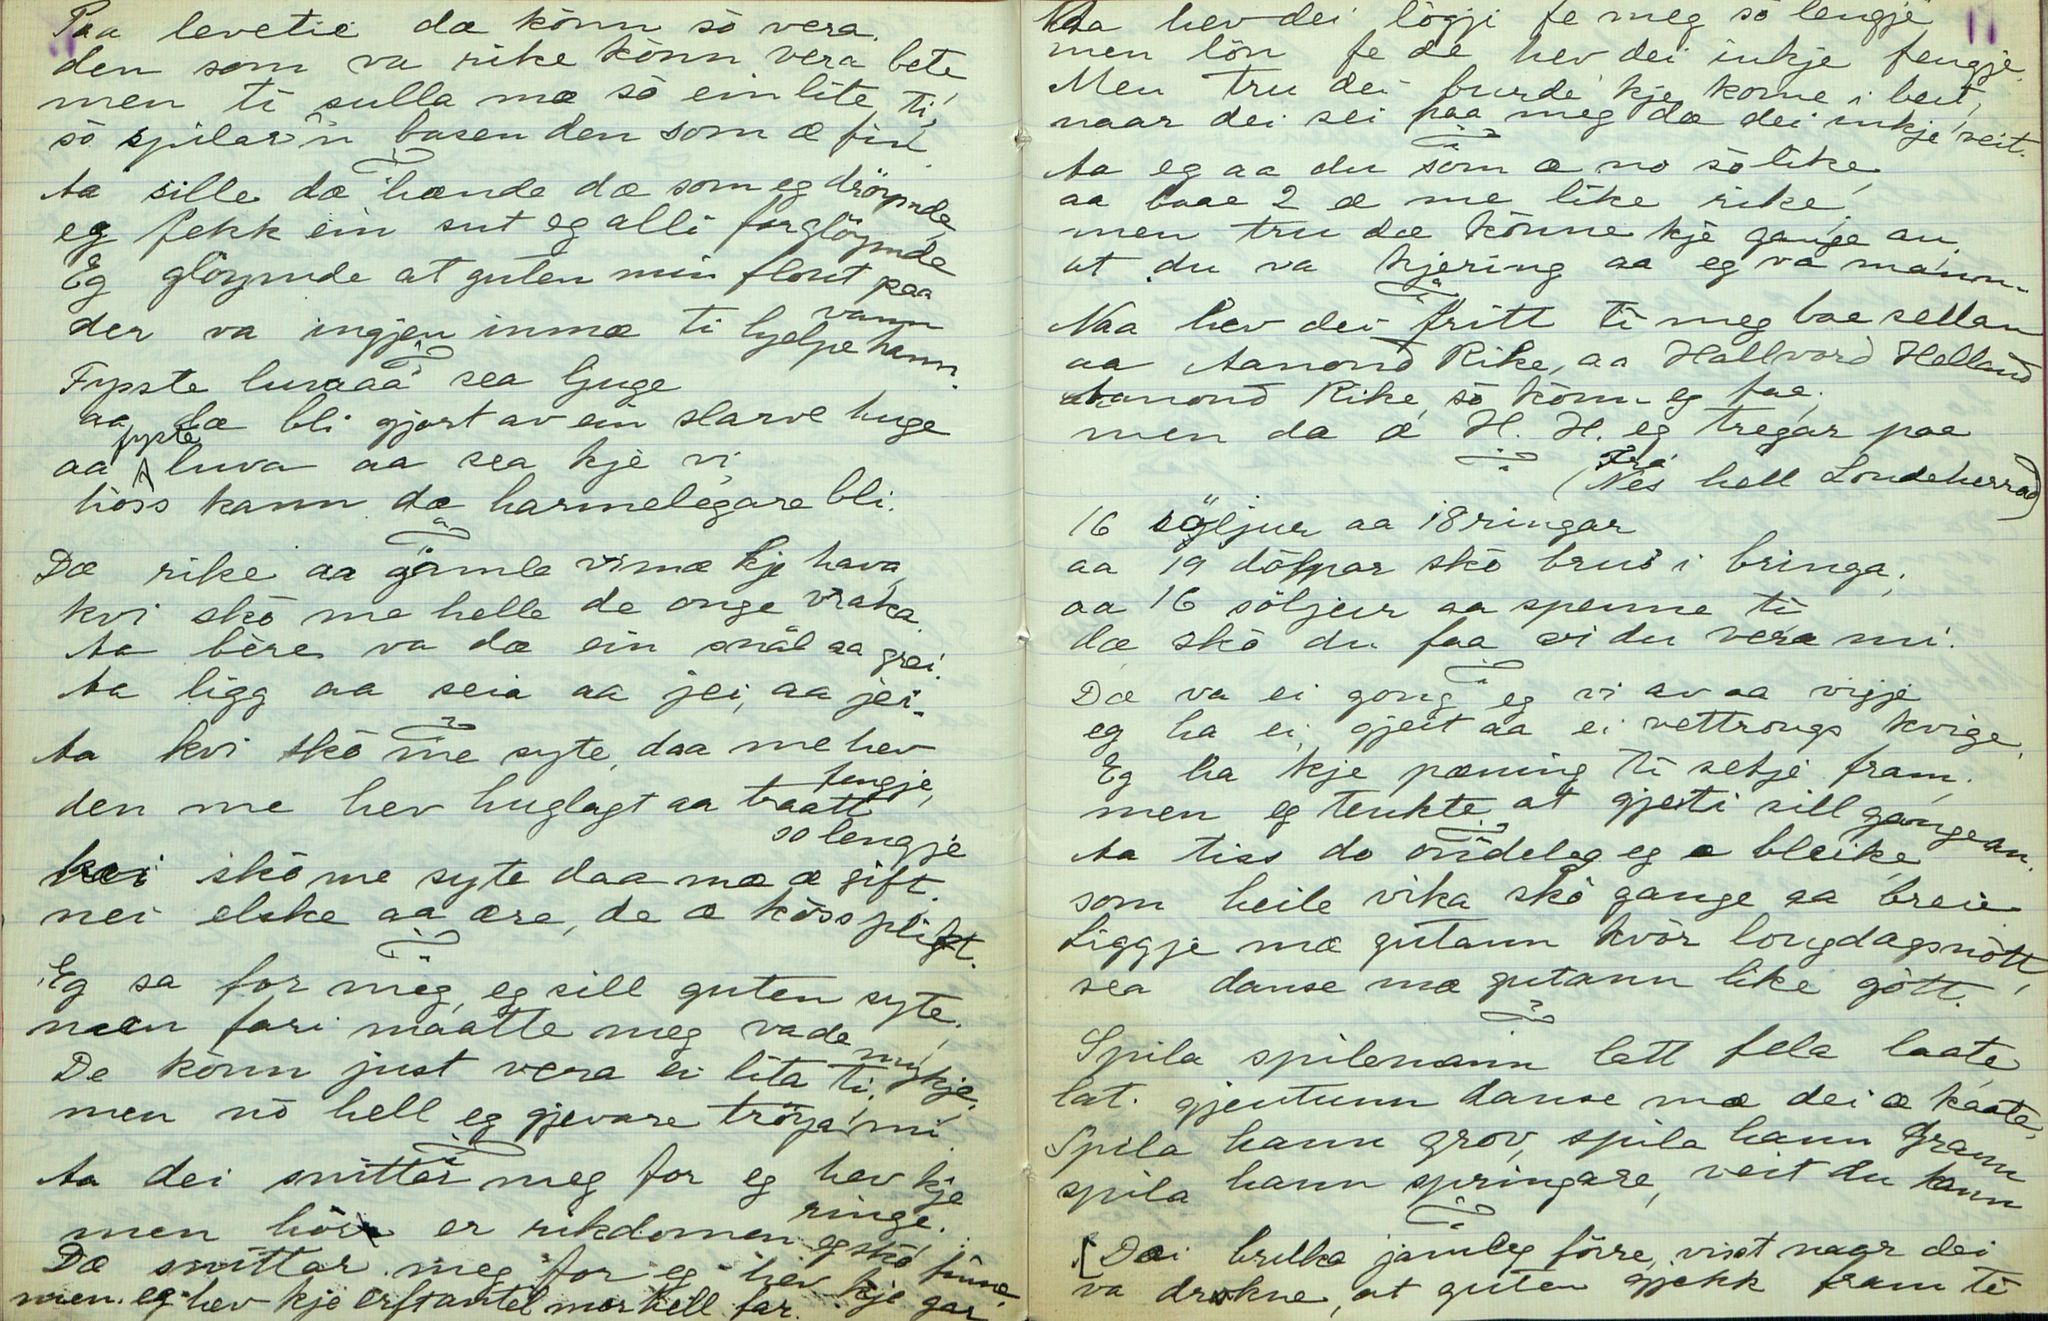 Paa levetie dæ könn sö vera
den som va rike könn vera bete
men ti sulla mæ sö ein lite ti,
sö spilar'n basen den som æ fin
Aa sille dæ hænde dæ som eg dröymde,
eg fekk ein sut eg alli forglöymde
Eg glöymde at guten min flout paa vann
der va ingjen inmæ ti hjelpe hann.
Fyste luva aa sea ljuge
aa dæ bli gjort av ein slarve huge
aa fyste luva aa sea kje vi
höss kann dæ harmelegare bli.
Dæ rike aa gamle vi mæ kje hava,
kvi skö me helle de onge vraka
Aa bère va dæ ein snål aa grei.
Aa ligg aa seia aa jei, aa jei.
Aa kvi skö me syte, daa me hev fengje,
den me hev huglagt aa traatt so lengje
kvi skö me syte daa mæ æ gift
nei elske aa ære, de æ köss pligt.
Eg sa for meg, eg sill guten syte,
men fari maatte meg vade mykje,
De könn just vera ei lita ti,
men nö hell eg gjevare tröya mi
Aa dei snittar meg for eg hev kje ringe.
men hör er rikdomen eg skö finne.
Dæ snittar meg for eg hev kje gar
men eg hev kje erft antel mor hell far.
Naa hev dei lögji fe meg sö lengje
men lön fe de hev dei inkje fengje.
Men tru dei burde kje kome i beit,
naar dei sei paa meg dæ dei inkje veit.
Aa eg aa du som æ no sö like,
aa baae 2 æ me like rike,
men tru dæ könne kje gange an,
at du va kjering aa eg va mann.
Naa hev dei fritt ti meg bae sellan
aa Aanond Rike, aa Hallvord Helland
Aanond Rike, sö könn eg faa,
men da æ H. H. eg tregar paa
(Frå Nes hell Londeherrad)
16 söljur aa 18 ringar
aa 19 dölpar skö brus i bringa,
aa 16 söljur aa spenne ti
dæ skö du faa vi du vera mi.
Dæ va ei gong eg vi av aa vigje
eg ha ei gjeit aa ei vettrongs kvige,
Eg ha kje pæning ti setje fram,
men eg tenkte at gjeti sill gange an.
Aa tiss do öndeleg eg æ bleike,
som heile vika skö gange aa breie
Liggje mæ gutann kvör longdagsnött,
sea danse mæ gutann like gött.
Spila spilemann latt fela laate,
lat gjentunn danse mæ dei æ kaate,
Spila hann grov, spila hann Grann
spila hann springare, veit du kann
[Dæi brukka jamleg förre, visst naar dei
va drokne, at guten gjekk fram ti